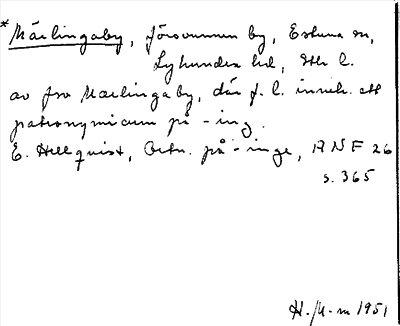 *Märlingaby, försvunnen by, Estuna sn,
Lyhundra hd, Sth l.
av fsv Maerlingaby, där f. l. inneh. ett
patronymicum på -ing.
E. Hellquist, Ortn. på -inge, ANF 26
s. 365
H. M-m 1951